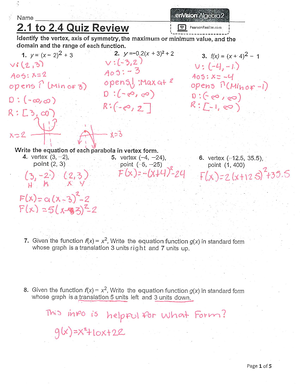 Name:
enVision Algebra2
PearsonRealize.com
2.1 to 2.4 Quiz Review
Identify the vertex, axis of symmetry, the maximum or minimum value, and the
domain and the range of each function.
1. y = (x − 2)² + 3
2. y = −0.2(x + 3)² + 2
3. f(x) = (x + 4)² − 1
V: (2, 3)
V: (-3, 2)
V: (-4, -1)
AOS: x=2
AOS: -3
AOS: x=-4
opens (Min or 3)
opens Max at
opens (Min or -1)
D: (-∞, ∞)
D: (-∞, ∞)
D: (-∞, ∞)
R: [3, ∞)
R: (-∞, 2]
R: [-1, ∞)
x=2
Write the equation of each parabola in vertex form.
4. vertex (3, −2),
point (2, 3)
5. vertex (−4, −24),
point (−5, −25)
6. vertex (−12.5, 35.5),
point (1, 400)
(3, -2) (2, 3)
H K X Y
F(x)=-(x+4)²-24
F(x)=2(x+12.5)²+35.5
F(x)=a(x-3)²-2
F(x)=5(x-3)²-2
7. Given the function f(x) = x², Write the equation function g(x) in standard form
whose graph is a translation 3 units right and 7 units up.
8. Given the function f(x) = x², Write the equation function g(x) in standard form
whose graph is a translation 5 units left and 3 units down.
This info is helpful for what form?
g(x)=x²+10x+22
Page 1 of 5